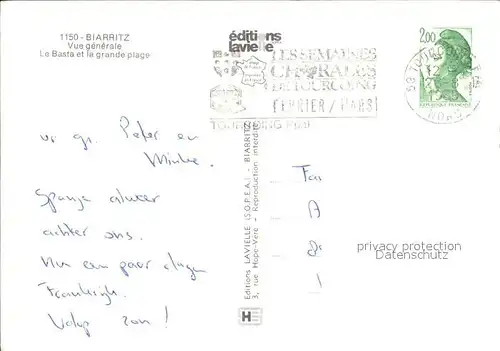 1150 - BIARRITZ
Vue générale
Le Basta et la grande plage
éditions
lavielle
LES SEMAINES
CHORALES
DE TOURCOING
FEVRIER / MARS
TOURCOING
2,00
Editions LAVIELLE (S.O.P.E.A.) - BIARRITZ
3, rue Hope-Vere - Reproduction interdite
vr. gr. Peter en
Minke.
Spanje alweer
achter ons.
Nu een paar dagen
Frankrijk.
Volop zon!
Fa
A
privacy protection
VARIAGE.COM